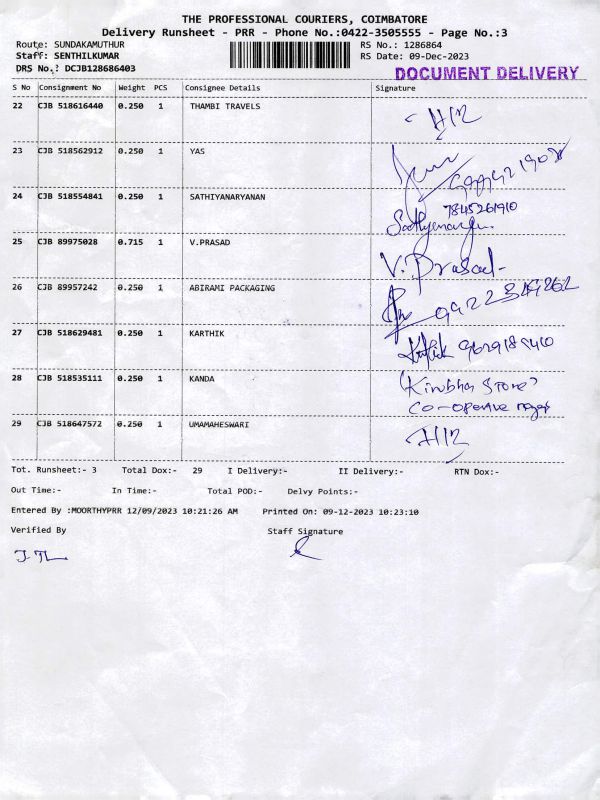 THE PROFESSIONAL COURIERS, COIMBATORE
Delivery Runsheet - PRR - Phone No.:0422-3505555 - Page No.:3
Route: SUNDAKAMUTHUR RS No.: 1286864
Staff: SENTHILKUMAR RS Date: 09-Dec-2023
DRS No.: DCJB128686403 DOCUMENT DELIVERY
S No Consignment No Weight PCS Consignee Details Signature
22 CJB 518616440 0.250 1 THAMBI TRAVELS
23 CJB 518562912 0.250 1 YAS
24 CJB 518554841 0.250 1 SATHIYANARYANAN 7845261910
25 CJB 89975028 0.715 1 V.PRASAD V. Prasad
26 CJB 89957242 0.250 1 ABIRAMI PACKAGING
27 CJB 518629481 0.250 1 KARTHIK Karthik
28 CJB 518535111 0.250 1 KANDA (Kirubha Store)
Co-operative
29 CJB 518647572 0.250 1 UMAMAHESWARI
Tot. Runsheet:- 3 Total Dox:- 29 I Delivery:- II Delivery:- RTN Dox:-
Out Time:- In Time:- Total POD:- Delvy Points:-
Entered By :MOORTHYPRR 12/09/2023 10:21:26 AM Printed On: 09-12-2023 10:23:10
Verified By Staff Signature